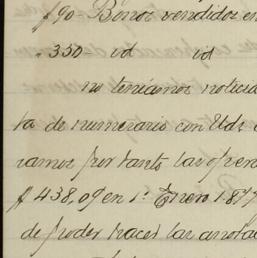 f 90 - Bonos vendidos en
" 350 - id id
no teniamos noticia
ta de numerario con Uds
iamos por tanto las
f 438,09 en 1º Enero 187
de poder hacer las anota